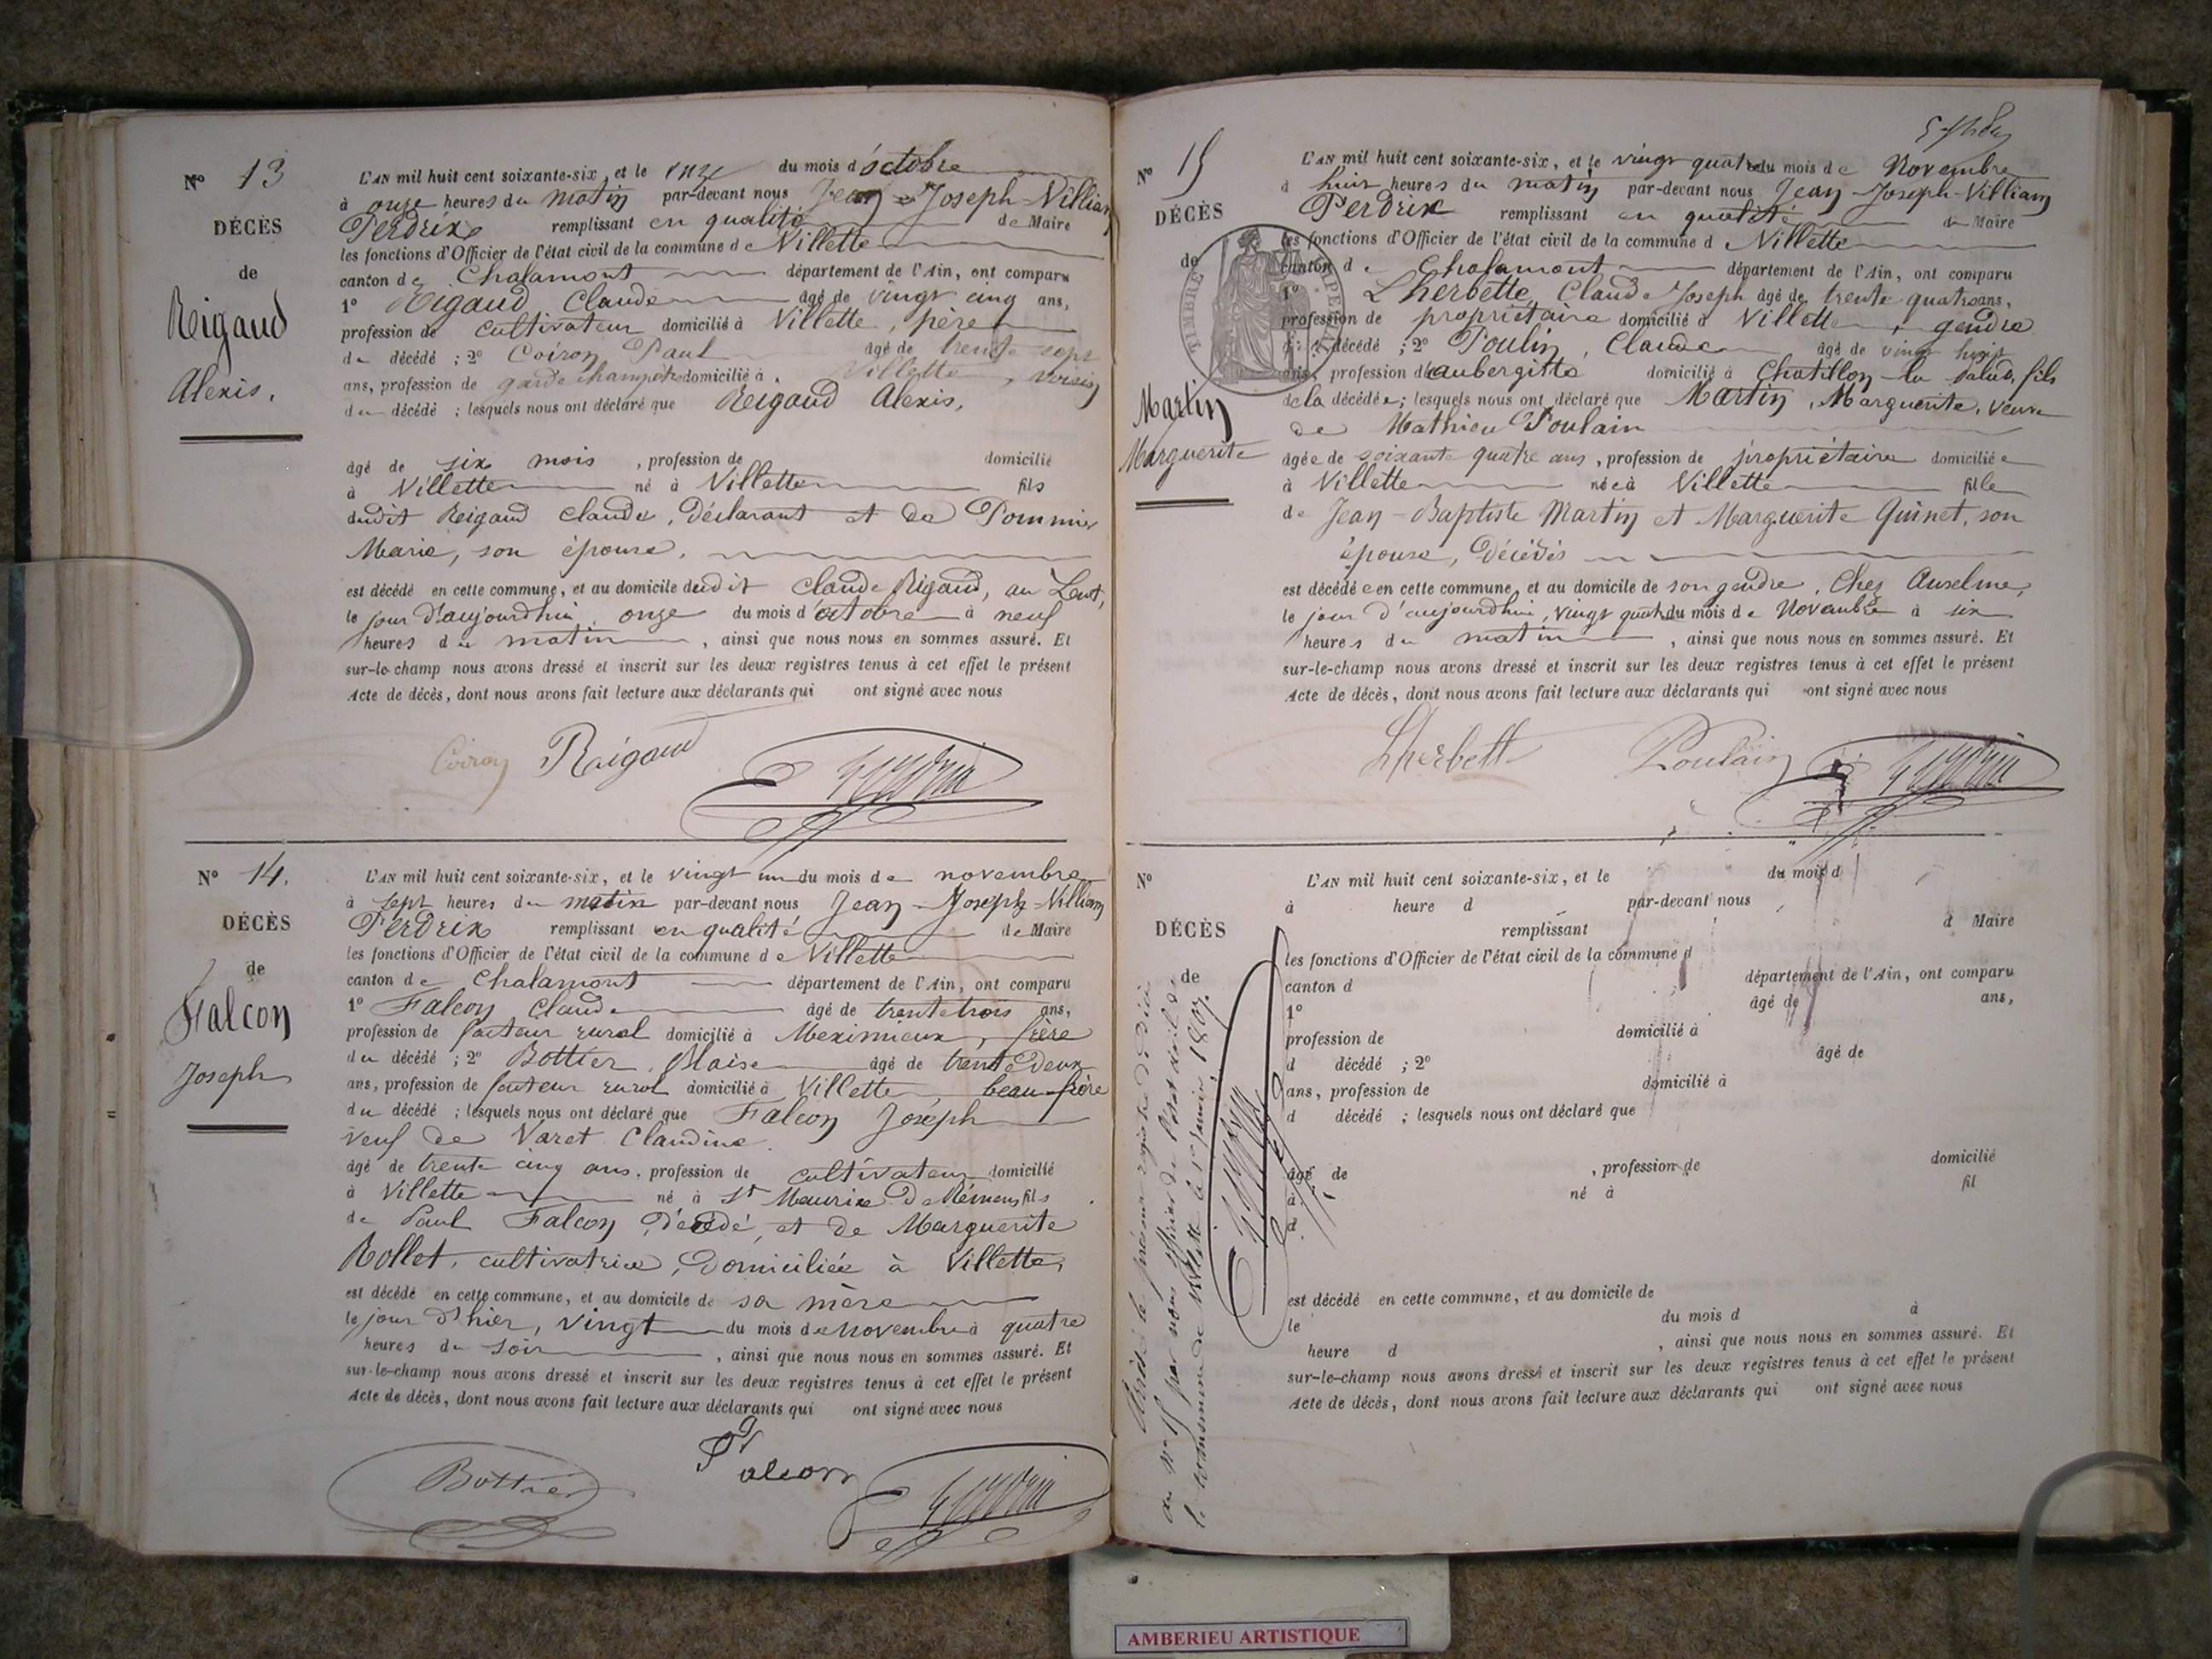 N° 13
DÉCÈS
de
Reigaud
Alexis.
L'AN mil huit cent soixante-six, et le onze du mois d'octobre
à onze heures du matin par-devant nous Jean-Joseph-Villiam
Perdrix remplissant en qualité de Maire
les fonctions d'Officier de l'état civil de la commune de Villette
canton de Chalamont département de l'Ain, ont comparu
1° Rigaud Claude âgé de vingt cinq ans,
profession de cultivateur domicilié à Villette, père
du décédé ; 2° Coiron Paul âgé de trente sept
ans, profession de garde champêtre domicilié à Villette, voisin
du décédé ; lesquels nous ont déclaré que Reigaud Alexis,
âgé de six mois , profession de domicilié
à Villette né à Villette fils
dudit Reigaud Claude, déclarant et de Pommier
Marie, son épouse,
est décédé en cette commune, et au domicile dudit Claude Rigaud, au
le jour d'aujourdhui onze du mois d'octobre à neuf
heures du matin , ainsi que nous nous en sommes assuré. Et
sur-le-champ nous avons dressé et inscrit sur les deux registres tenus à cet effet le présent
Acte de décès, dont nous avons fait lecture aux déclarants qui ont signé avec nous
Coiron Reigaud
N° 14.
DÉCÈS
de
Falcon
Joseph
L'AN mil huit cent soixante-six, et le vingt un du mois de novembre
à sept heures du matin par-devant nous Jean-Joseph-Villiam
Perdrix remplissant en qualité de Maire
les fonctions d'Officier de l'état civil de la commune de Villette
canton de Chalamont département de l'Ain, ont comparu
1° Falcon Claude âgé de trente trois ans,
profession de facteur rural domicilié à Meximieux, frère
du décédé ; 2° Bottier Blaise âgé de trente deux
ans, profession de facteur rural domicilié à Villette, beau-frère
du décédé ; lesquels nous ont déclaré que Falcon Joseph
veuf de Varet Claudine.
âgé de trente cinq ans, profession de cultivateur domicilié
à Villette né à St Maurice De Rémens fils
de Paul Falcon, décédé, et de Marguerite
Rollet, cultivatrice, domiciliée à Villette,
est décédé en cette commune, et au domicile de sa mère
le jour d'hier, vingt du mois de Novembre à quatre
heures du soir , ainsi que nous nous en sommes assuré. Et
sur-le-champ nous avons dressé et inscrit sur les deux registres tenus à cet effet le présent
Acte de décès, dont nous avons fait lecture aux déclarants qui ont signé avec nous
Bottier Falcon
N° 15
DÉCÈS
de
Martin
Marguerite
TIMBRE IMPÉRIAL
L'AN mil huit cent soixante-six, et le vingt quatre du mois de Novembre
à huit heures du matin par-devant nous Jean-Joseph-Villiam
Perdrix remplissant en qualité de Maire
les fonctions d'Officier de l'état civil de la commune d Villette
canton de Chalamont département de l'Ain, ont comparu
1° Lherbette Claude Joseph âgé de trente quatre ans,
profession de propriétaire domicilié à Villette, gendre
décédé ; 2° Poulin, Claude âgé de vingt huit
ans, profession d'aubergiste domicilié à Chatillon-la-Palud, fils
de la décédée ; lesquels nous ont déclaré que Martin, Marguerite, veuve
de Mathieu Poulain
âgée de soixante quatre ans, profession de propriétaire domiciliée
à Villette née à Villette fille
de Jean-Baptiste Martin et Marguerite Guinet, son
épouse, décédés
est décédée en cette commune, et au domicile de son gendre, Chez Anselme,
le jour d'aujourdhui, vingt quatre du mois de Novembre à six
heures du matin , ainsi que nous nous en sommes assuré. Et
sur-le-champ nous avons dressé et inscrit sur les deux registres tenus à cet effet le présent
Acte de décès, dont nous avons fait lecture aux déclarants qui ont signé avec nous
Lherbett Poulain
N°
DÉCÈS
de
L'AN mil huit cent soixante-six, et le du mois d
à heure d par-devant nous
remplissant d Maire
les fonctions d'Officier de l'état civil de la commune d
canton d département de l'Ain, ont comparu
1° âgé de ans,
profession de domicilié à
d décédé ; 2° âgé de
ans, profession de domicilié à
d décédé ; lesquels nous ont déclaré que
âgé de , profession de domicilié
à né à fil
d
est décédé en cette commune, et au domicile de
le du mois d à
heure d , ainsi que nous nous en sommes assuré. Et
sur-le-champ nous avons dressé et inscrit sur les deux registres tenus à cet effet le présent
Acte de décès, dont nous avons fait lecture aux déclarants qui ont signé avec nous
le présent registre de décès
au N° 15 par nous officier de l'état civil de
la commune de Villette le janvier 1867.
AMBERIEU ARTISTIQUE